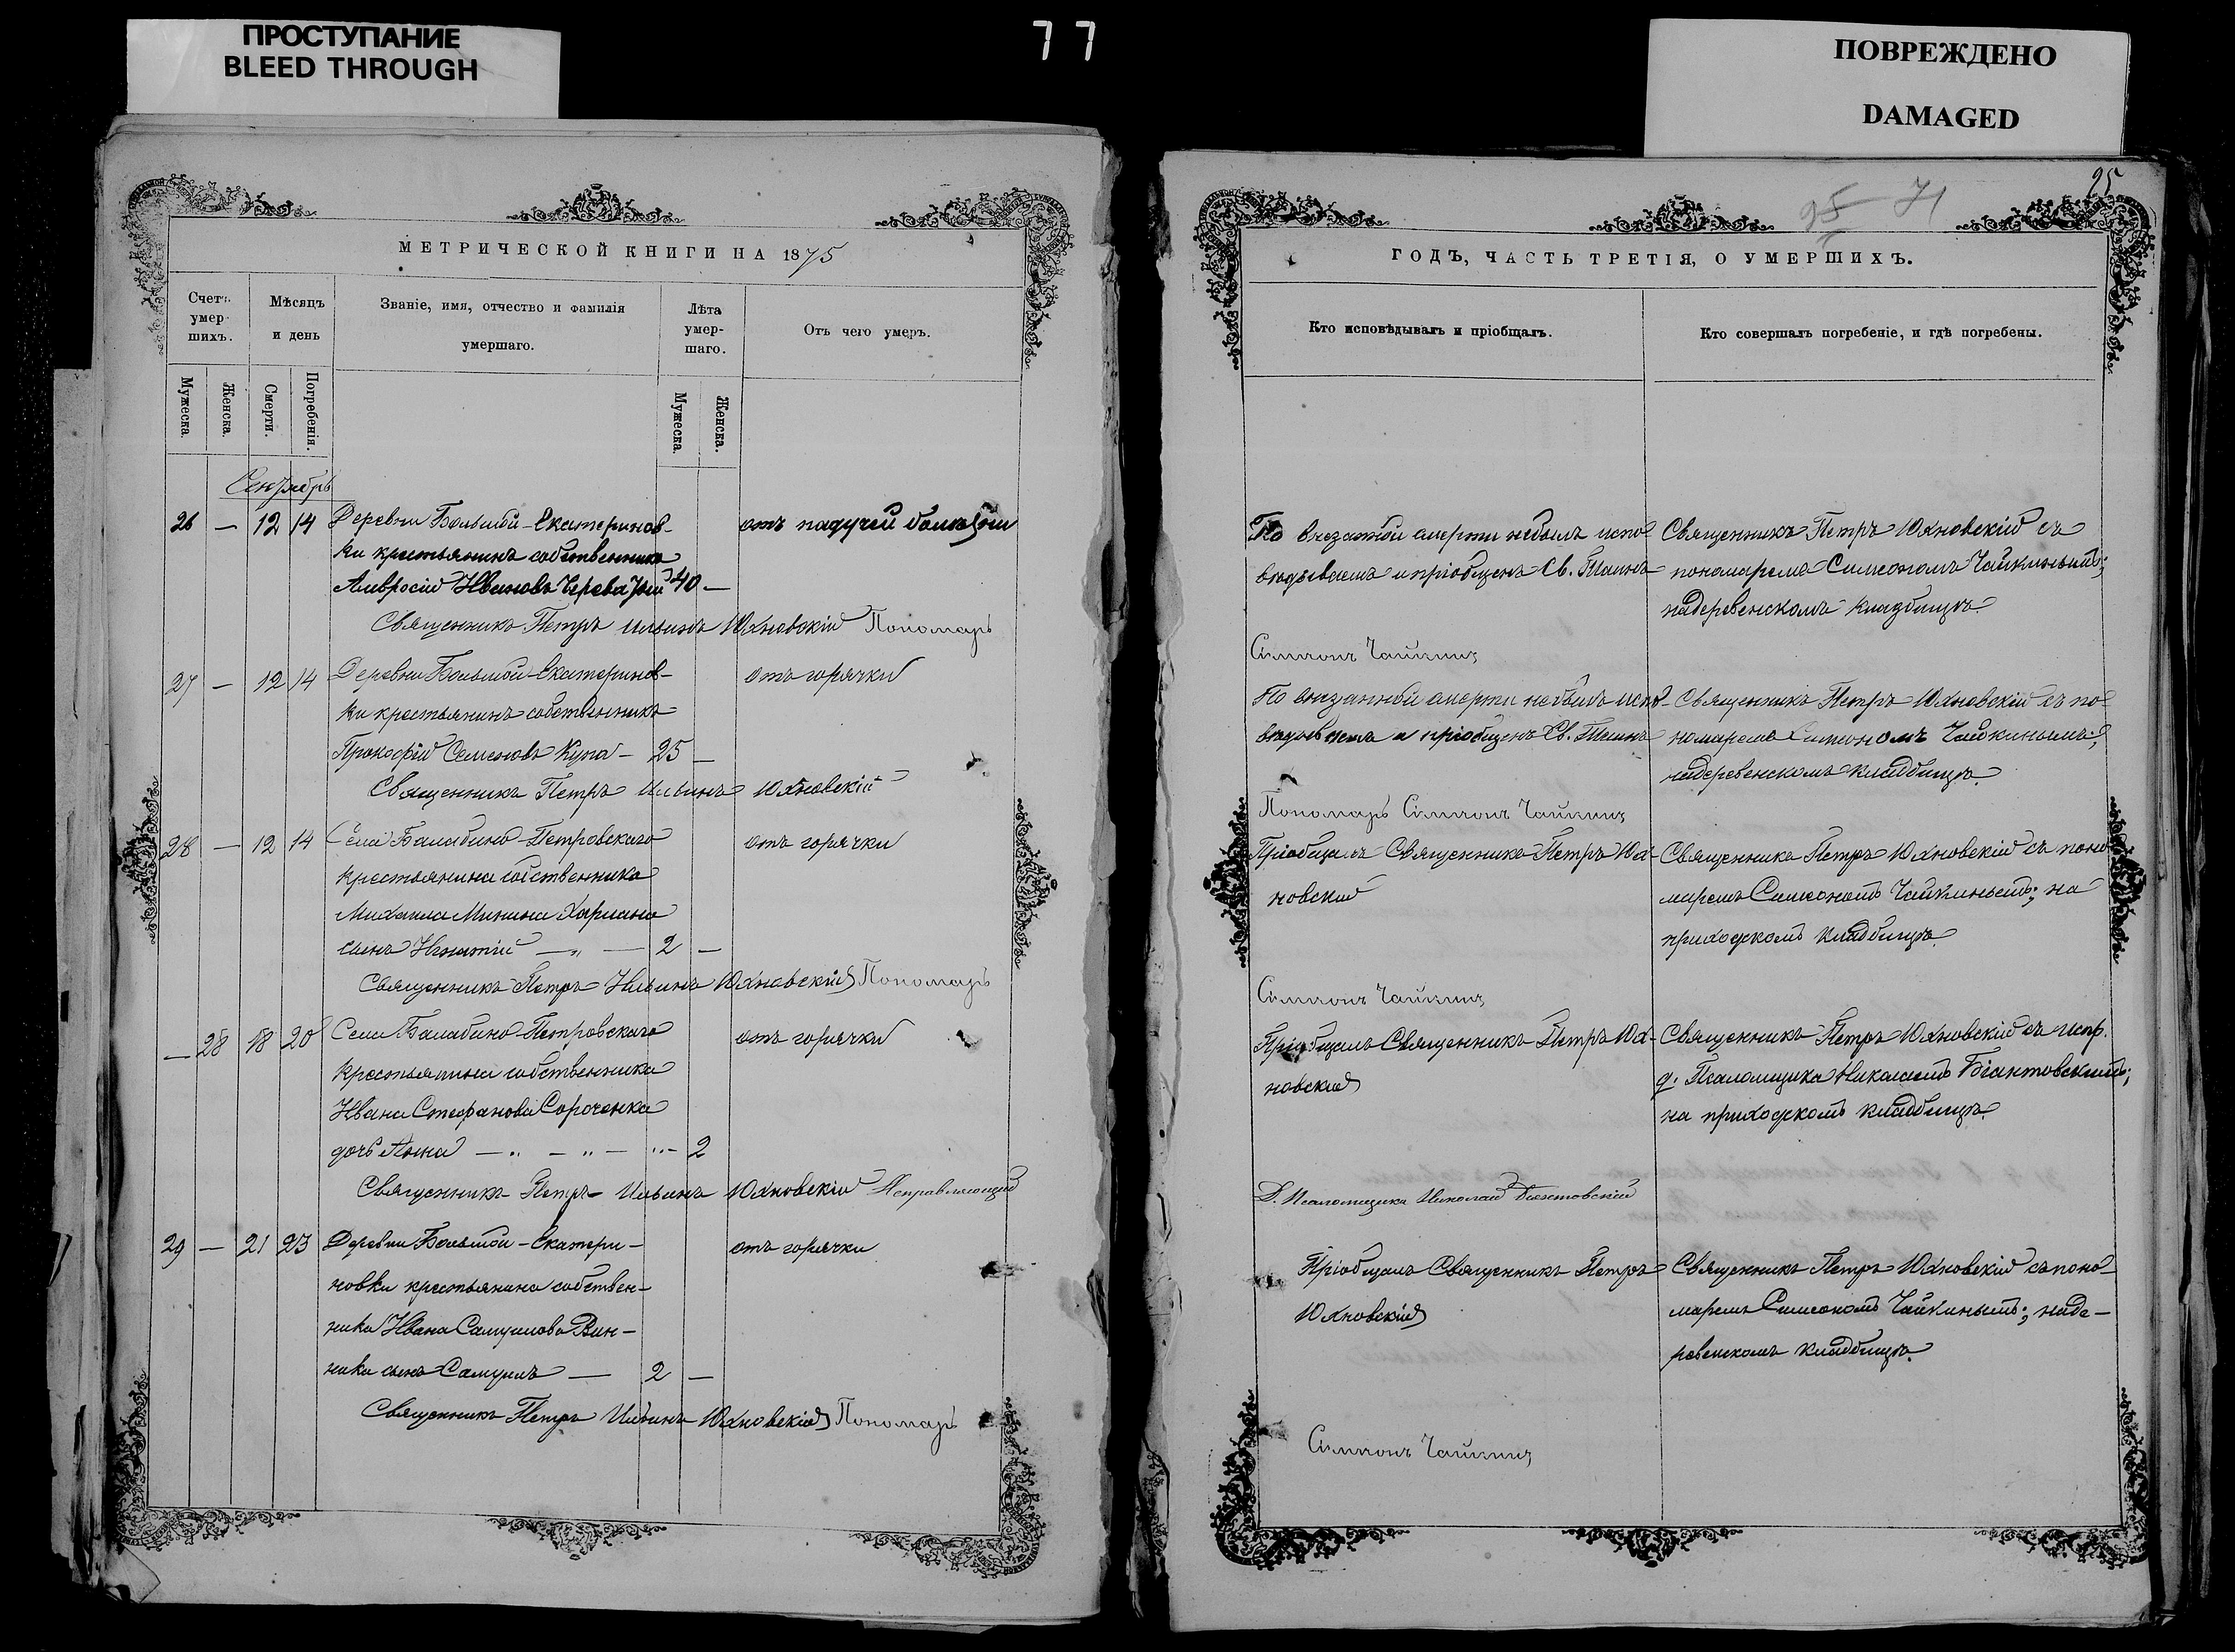 ПРОСТУПАНИЕ
BLEED THROUGH
77
ПОВРЕЖДЕНО
DAMAGED
МЕТРИЧЕСКОЙ КНИГИ НА 1875
Счетъ умер-шихъ.
Мѣсяцъ и день
Званіе, имя, отчество и фамилія умершаго.
Лѣта умер-шаго.
Отъ чего умеръ.
Мужеска.
Женска.
Смерти.
Погребенія.
Мужеска.
Женска.
Сентябрь
26 — 12 14 Деревни Большой-Екатеринов-
ки крестьянинъ собственникъ
Амвросій Ивановъ 40 —
отъ падучей болѣзни
Священникъ Петръ Ильинъ Юхновскій Пономарь
27 — 12 14 Деревни Большой-Екатеринов-
ки крестьянинъ собственникъ
Прокофій Семеновъ Купа — 25 —
отъ горячки
Священникъ Петръ Ильинъ Юхновскій
28 — 12 14 Села Балабино-Петровскаго
крестьянина собственника
Михаила Минина
сынъ Игнатій — „ — 2 —
отъ горячки
Священникъ Петръ Ильинъ Юхновскій Пономарь
— 28 18 20 Села Балабино-Петровскаго
крестьянина собственника
Ивана Стефанова Сороченка
дочь Анна — „ — „ — „ — 2
отъ горячки
Священникъ Петръ Ильинъ Юхновскій Исправляющій
29 — 21 23 Деревни Большой-Екатери-
новки крестьянина собствен-
ника Ивана Самуилова Вин-
ника сынъ Самуилъ — 2 —
отъ горячки
Священникъ Петръ Ильинъ Юхновскій Пономарь
95
71
ГОДЪ, ЧАСТЬ ТРЕТІЯ, О УМЕРШИХЪ.
Кто исповѣдывалъ и пріобщалъ.
Кто совершалъ погребеніе, и гдѣ погребены.
По внезапной смерти небылъ испо-
вѣдываемъ и пріобщенъ Св. Таинъ
Священникъ Петръ Юхновскій съ
пономаремъ Симеономъ Чайкинымъ;
надеревенскомъ кладбищѣ.
Симеонъ Чайкинъ
По внезапной смерти небылъ испо-
вѣдываемъ и пріобщенъ Св. Таинъ
Священникъ Петръ Юхновскій съ по-
номаремъ Симеономъ Чайкинымъ;
надеревенскомъ кладбищѣ.
Пономарь Симеонъ Чайкинъ
Пріобщалъ Священникъ Петръ Юх-
новскій
Священникъ Петръ Юхновскій съ поно-
маремъ Симеономъ Чайкинымъ; на
приходскомъ кладбищѣ.
Симеонъ Чайкинъ
Пріобщалъ Священникъ Петръ Юх-
новскій
Священникъ Петръ Юхновскій съ испр.
д. Псаломщика Николаемъ
на приходскомъ кладбищѣ.
Д. Псаломщика Николай
Пріобщалъ Священникъ Петръ
Юхновскій
Священникъ Петръ Юхновскій съ поно-
маремъ Симеономъ Чайкинымъ; наде-
ревенскомъ кладбищѣ.
Симеонъ Чайкинъ